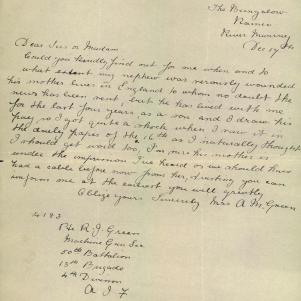 The Bungalow
Ramco
River Murray
Dec 17th
Dear Sirs or Madam
Could you kindly find out for me when and to
what extent my nephew was seriously wounded
his mother lives in England to whom no doubt the
news has been sent, but he has lived with me
for the last four years as a son and I draw his
pay, so I got quite a shock when I saw it in
the daily papers of the as I naturally thought
I should get word too, I'm sure his mother is
under the impression I've heard or we should have
had a cable before now from her, trusting you can
inform me at the earliest you will greatly
Oblige yours Sincerely Mrs A M Green
4193
Pte R. J. Green
Machine Gun Sec
50th Battalion
13th Brigade
4th Division
A I F